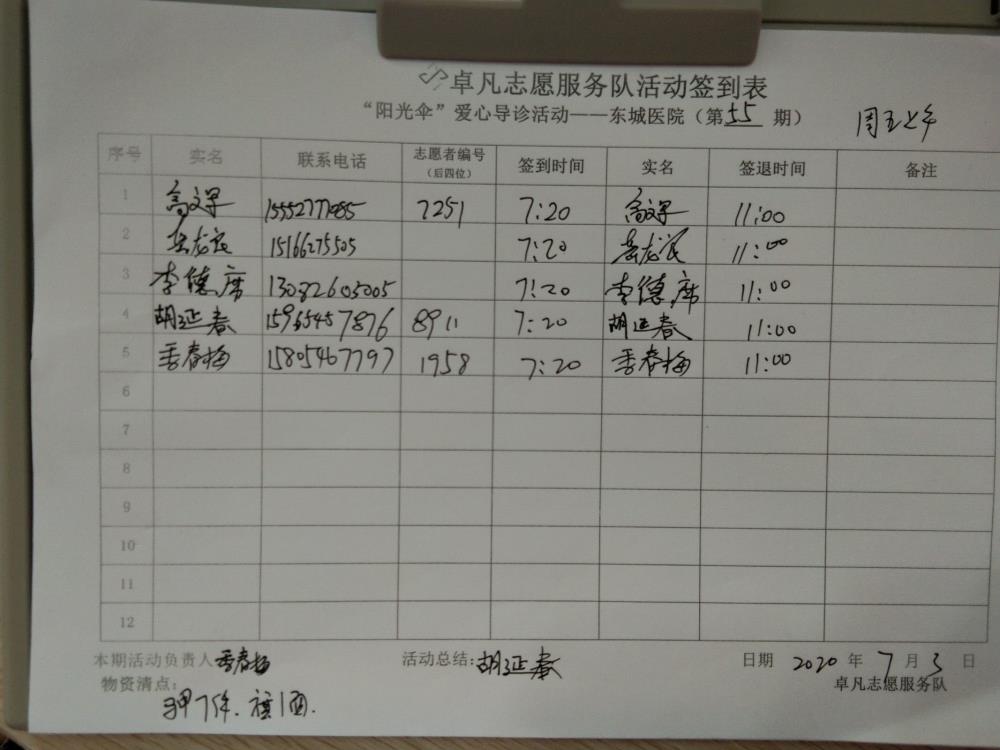 卓凡志愿服务队活动签到表
“阳光伞”爱心导诊活动——东城医院（第 55 期） 周五上午
序号 实名 联系电话 志愿者编号（后四位） 签到时间 实名 签退时间 备注
1 高文军 15552771985 7251 7:20 高文军 11:00
2 龙民 15166275505 7:20 龙民 11:00
3 李德席 13082605005 7:20 李德席 11:00
4 胡延春 15965457876 8911 7:20 胡延春 11:00
5 季春梅 15805467797 1958 7:20 季春梅 11:00
6
7
8
9
10
11
12
本期活动负责人 季春梅 活动总结：胡延春 日期 2020 年 7 月 3 日
物资清点： 卓凡志愿服务队
7件、旗1面.